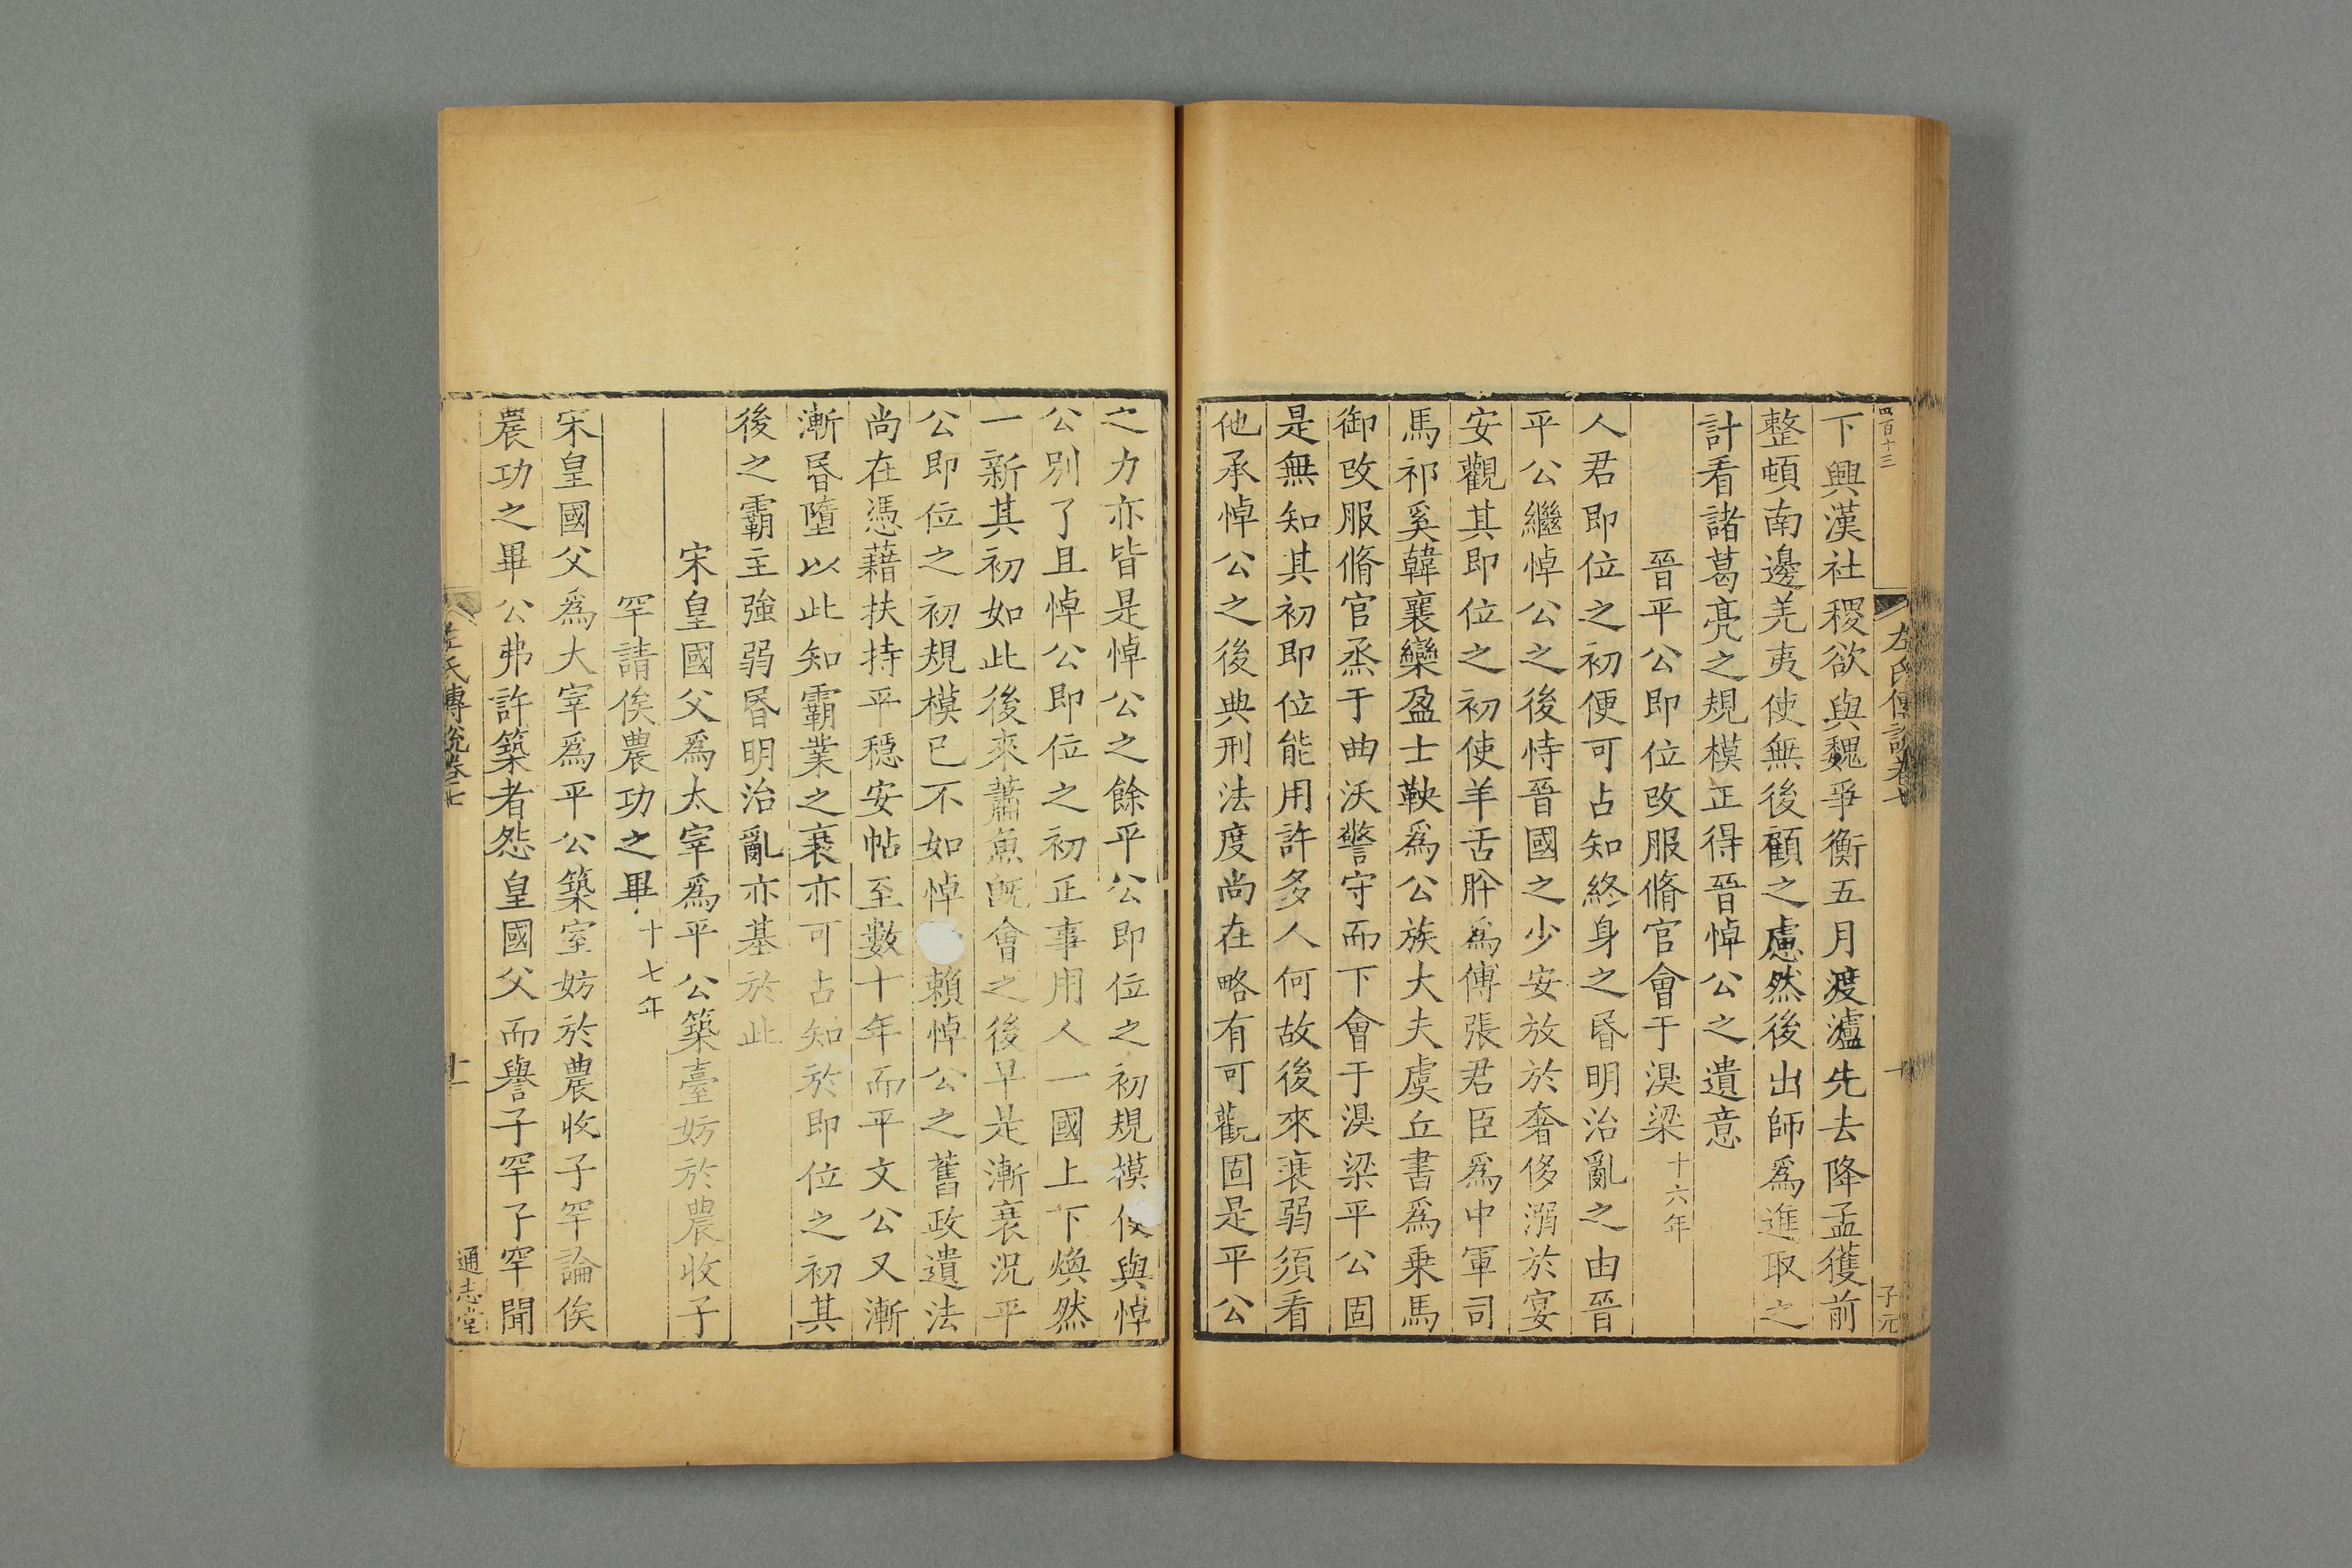 四百十三
左氏傳說卷七
十
子元
下興漢社稷欲與魏爭衡五月渡瀘先去降孟獲前
整頓南邊羌夷使無後顧之慮然後出師爲進取之
計看諸葛亮之規模正得晉悼公之遺意
晉平公即位改服脩官會于湨梁十六年
人君即位之初便可占知終身之昬明治亂之由晉
平公繼悼公之後恃晉國之少安放於奢侈溺於宴
安觀其即位之初使羊舌肸爲傅張君臣爲中軍司
馬祁奚韓襄欒盈士鞅爲公族大夫虞丘書爲乗馬
御改服脩官烝于曲沃警守而下會于湨梁平公固
是無知其初即位能用許多人何故後來衰弱須看
他承悼公之後典刑法度尚在略有可觀固是平公
之力亦皆是悼公之餘平公即位之初規模與悼
公別了且悼公即位之初正事用人一國上下煥然
一新其初如此後來蕭魚旣會之後早是漸衰況平
公即位之初規模已不如悼賴悼公之舊政遺法
尚在憑藉扶持平穩安帖至數十年而平文公又漸
漸昬墮以此知霸業之衰亦可占知於即位之初其
後之霸主強弱昬明治亂亦基於此
宋皇國父爲太宰爲平公築臺妨於農收子
罕請俟農功之畢十七年
宋皇國父爲大宰爲平公築室妨於農收子罕論俟
農功之畢公弗許築者怨皇國父而譽子罕子罕聞
左氏傳說卷七
十一
通志堂